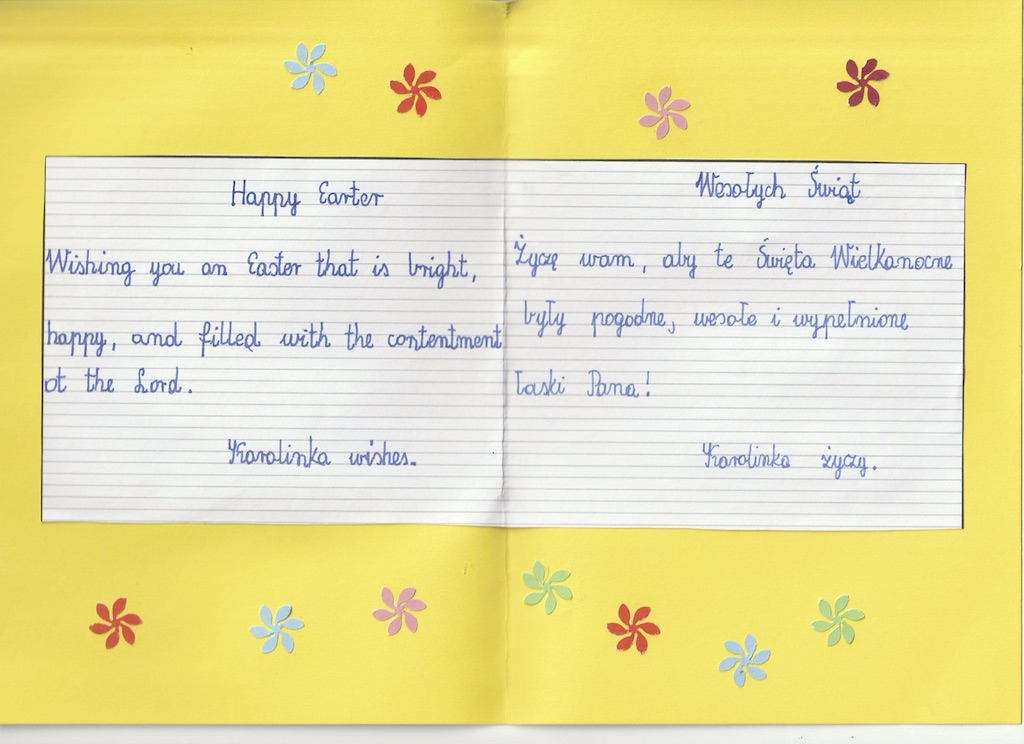 Happy Earter
Wishing you an Easter that is bright,
happy, and filled with the contentment
ot the Lord.
Karolinka wishes.
Wesołych Świąt
Życzę wam, aby te Święta Wielkanocne
były pogodne, wesołe i wypełnione
łaski Pana!
Karolinka życzy.